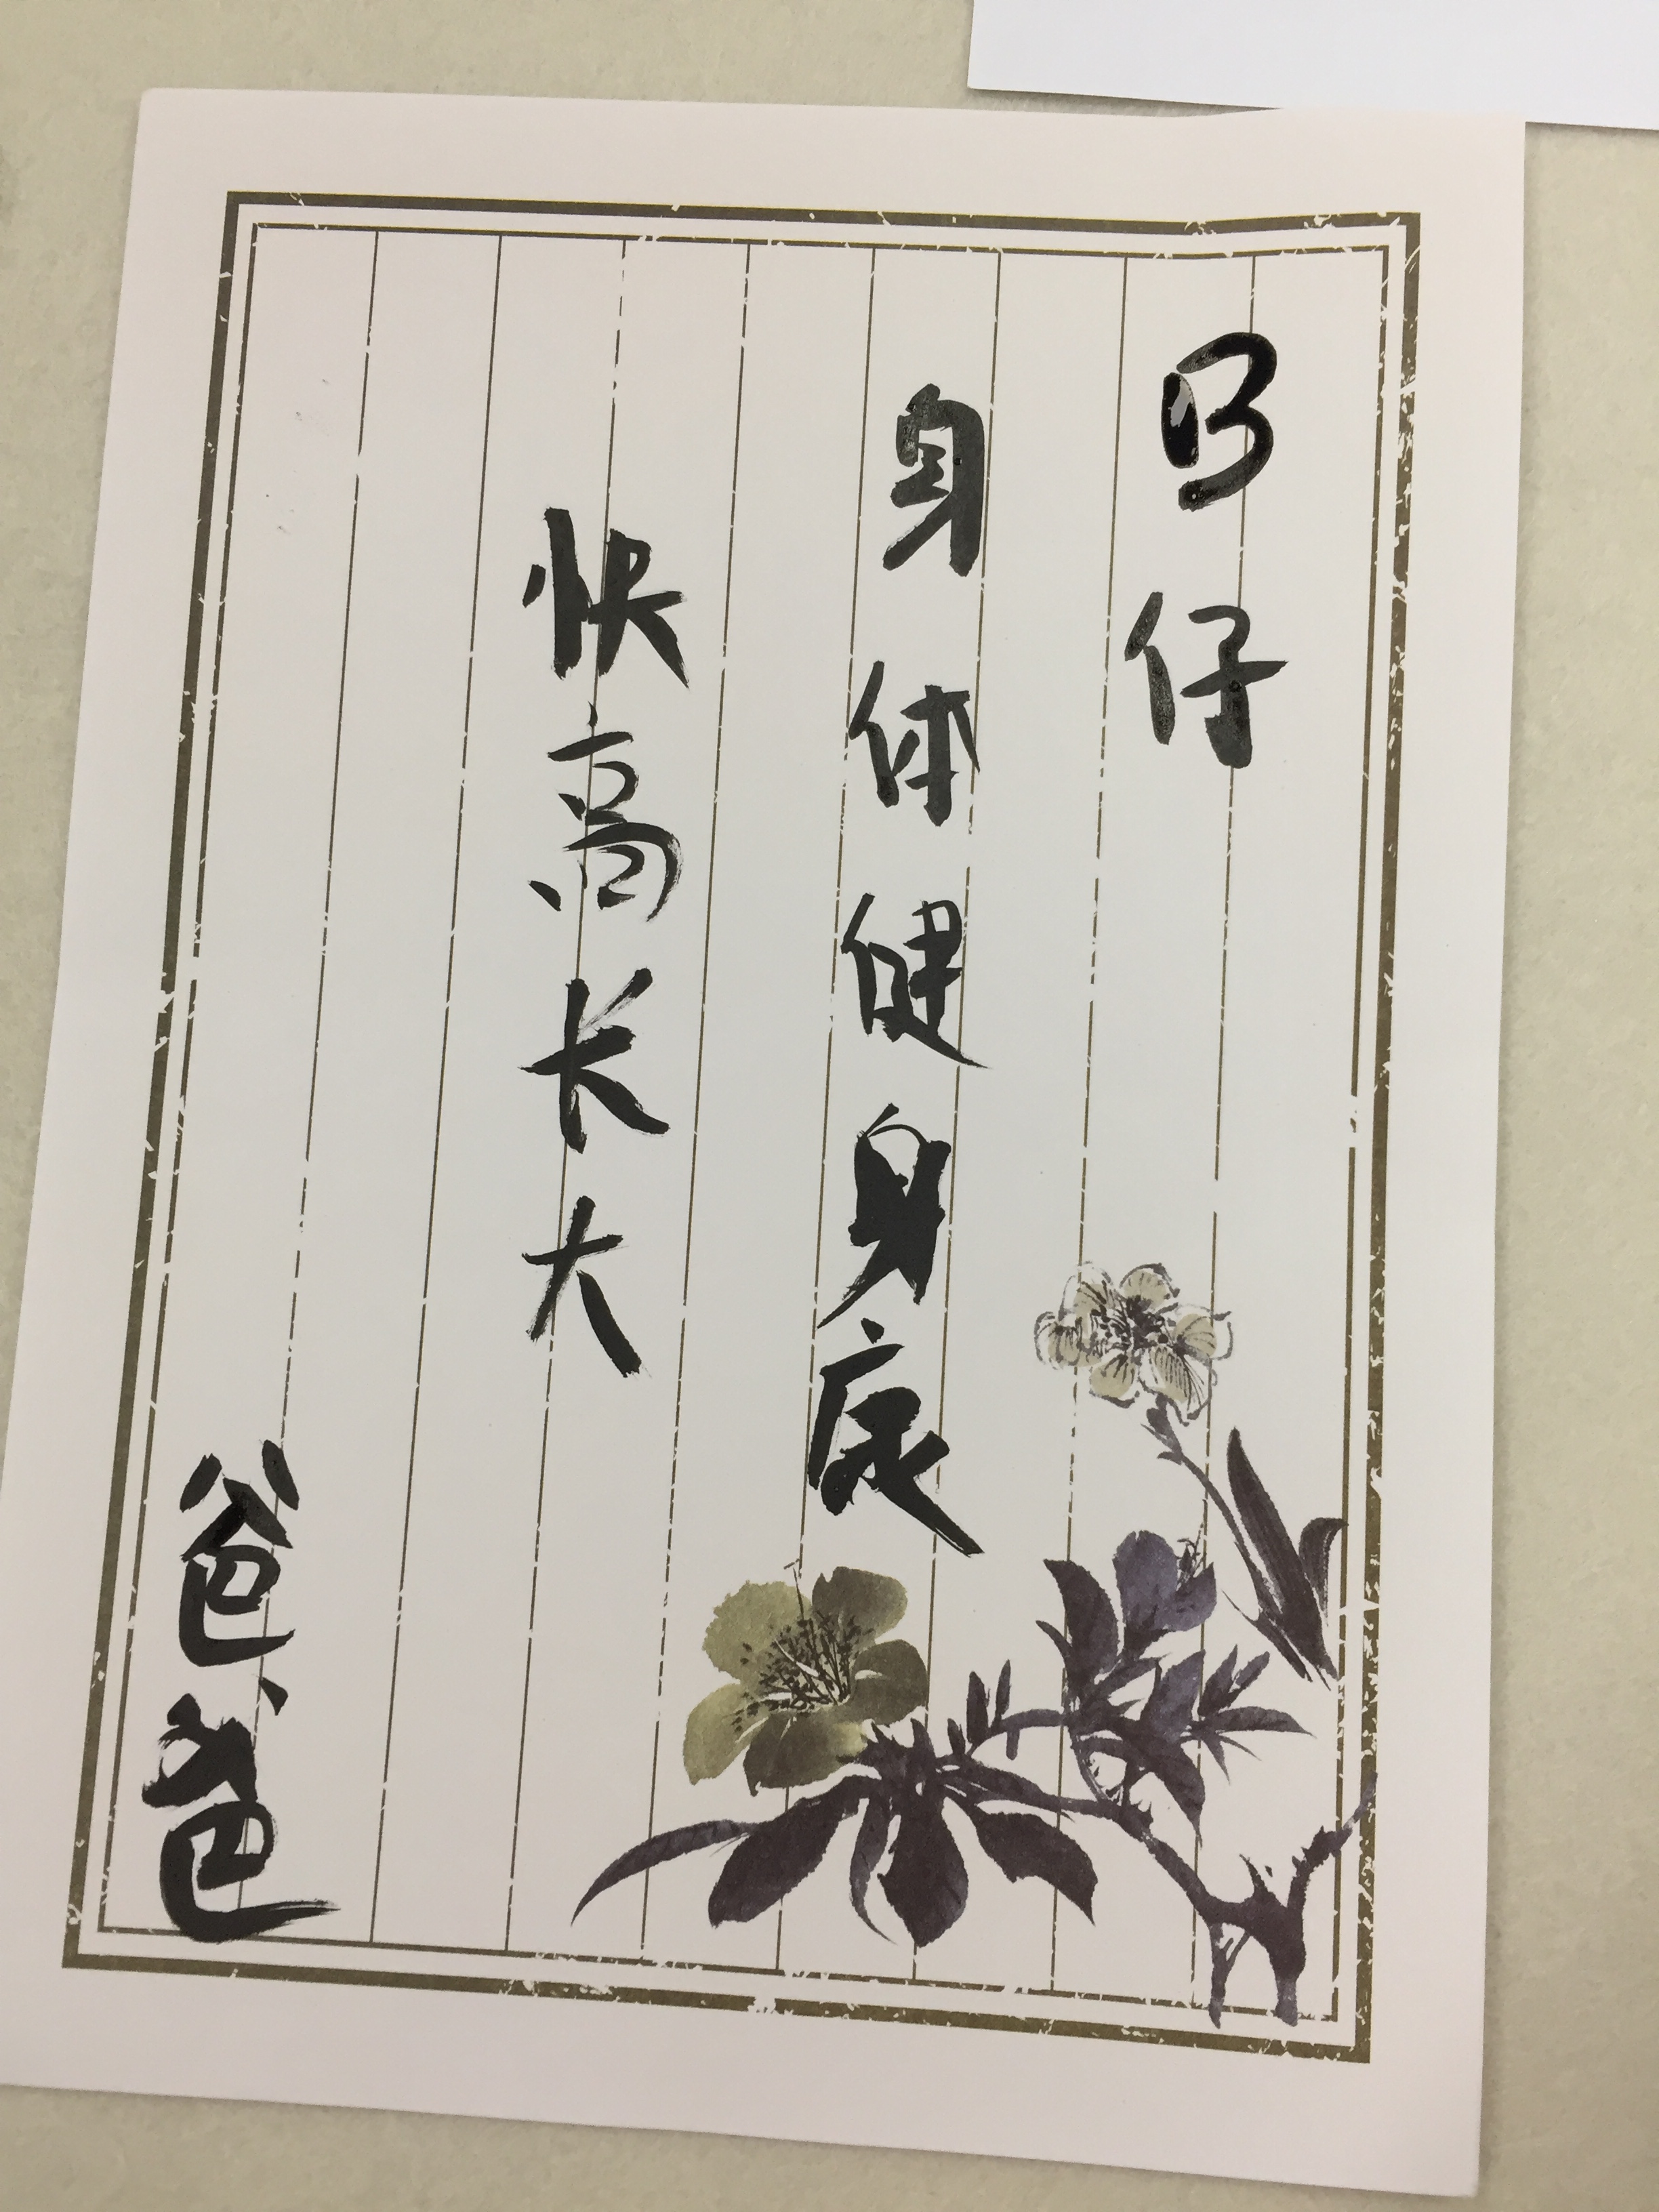 B仔
身体健身康
快高长大
爸爸